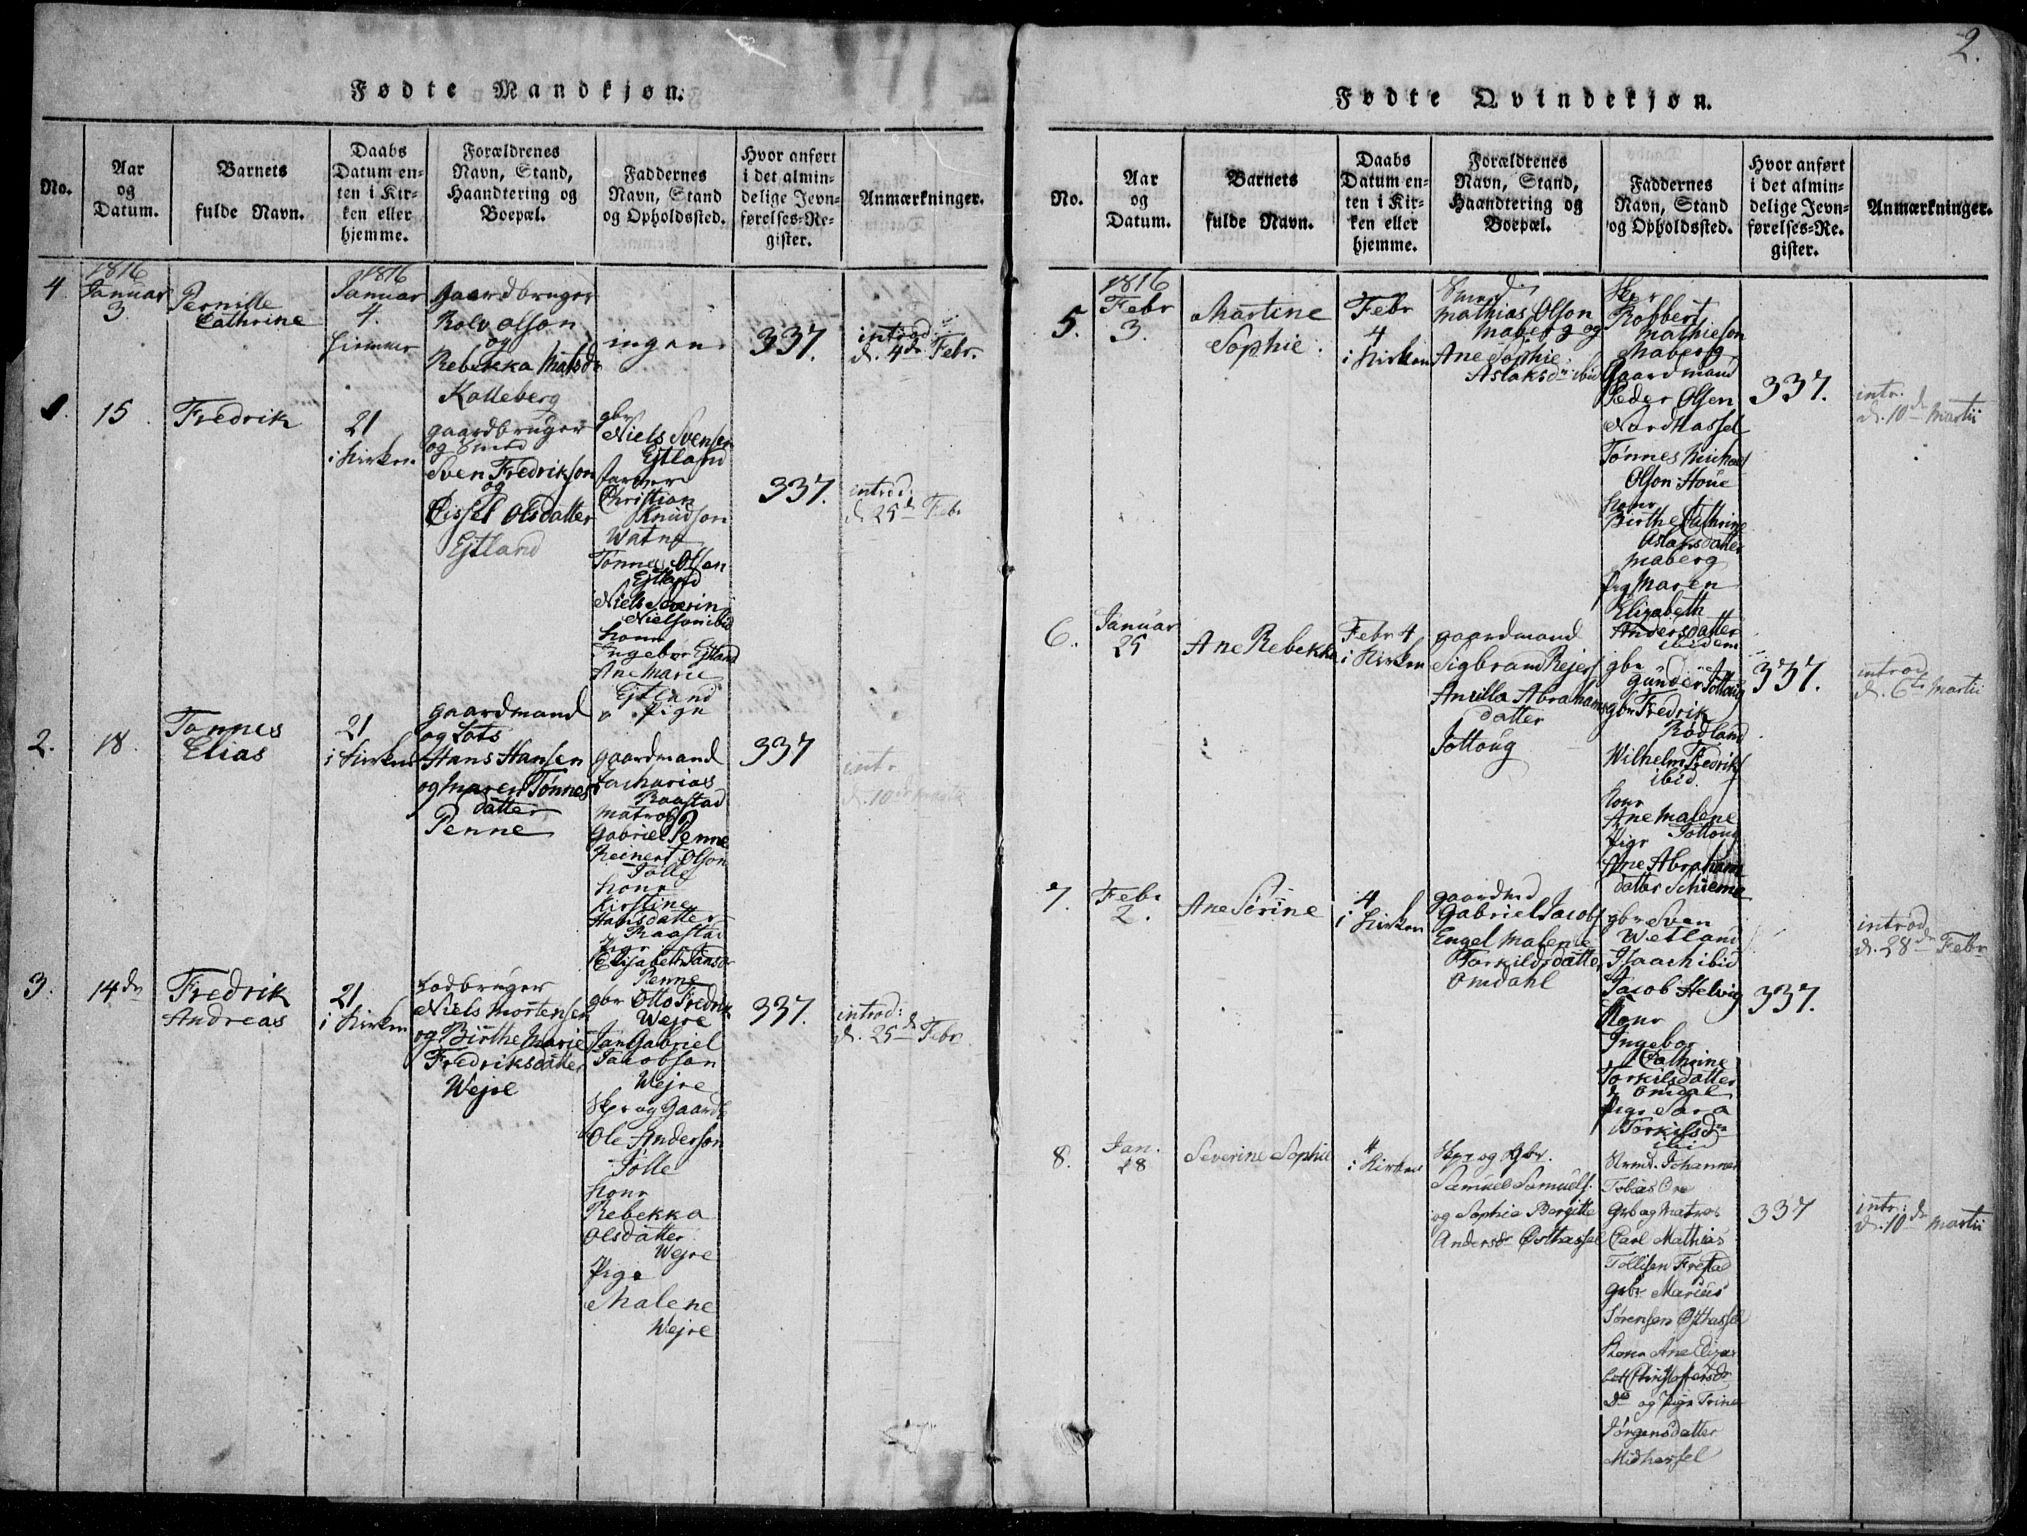 2.
Fødte Mandkjøn.
No.
Aar
og
Datum.
Barnets
fulde Navn.
Daabs
Datum en-
ten i Kir-
ken eller
hjemme.
Forældrenes
Navn, Stand,
Haandtering og
Boepæl.
Faddernes
Navn, Stand
og Opholdssted.
Hvor anført
i det almin-
delige Jevn-
førelses-Re-
gister.
Anmærkninger.
4.
1816
Januar
3.
Pernille
Cathrine
1816
Januar
4.
hiemme
Gaardbruger
Rolv Olson
og
Rebekka Matsdr
Kalleberg
ingen
337.
introd:
d. 4de Febr.
1.
15
Fredrik
21
i Kirken
gaardbruger
og Smed
Sven Fredrikson
og
Cissel Olsdatter
Eftland
gbr
Niels Svensen
Eftland
Farver
Christian
Knudson
Watne
Tønnes Olsen
Eftland
Niels Severin
Nielson ibid
Kone
Ingebor Eftland
Ane Marie
Eftland
Pige
337.
introd:
d. 25de Febr
2.
18
Tønnes
Elias
21
i Kirken
gaardmand
og Lots
Hans Hansen
og Maren Tønnes
datter
Penne
gaardmand
Zacharias
Raastad
Matros
Gabriel Penne
Reinert Olson
Jølle
Konr
Kirstine
Hansdatter
Raastad
Pigr
Elisabeth Jansdr
Penne
337
intr.
d. 10de Martii
3.
14de
Fredrik
Andreas
21
i Kirken
Lodbruger
Niels Mortensen
og Birthe Marie
Fredriksdatter
Wejre
gbr Otto Fredrik
Wejre
Jan Gabriel
Jacobson
Wejre
Skpr og Gaardb
Ole Anderson
Jølle
Konr
Rebekka
Olsdatter
Wejre
Pige
Malene
Wejre
337.
introd:
d. 25de Febr
Fødte Qvindekjøn.
No.
Aar
og
Datum.
Barnets
fulde Navn.
Daabs
Datum en-
ten i Kir-
ken eller
hjemme.
Forældrenes
Navn, Stand,
Haandtering og
Boepæl.
Faddernes
Navn, Stand
og Opholdssted.
Hvor anført
i det almin-
delige Jevn-
førelses-Re-
gister.
Anmærkninger.
5.
1816
Febr
3.
Martine
Sophie.
Febr
4
i Kirken
Mathias Olson
Maberg og
Ane Sophie
Aslaksdr ibid
Skpr
Robbert
Mathieson
Maberg
Gaardmand
Peder Olsen
Nordhassel
Tønnes Michael
Olson Houe
Konr
Birthe Cathrine
Aslaksdatter
Maberg
Pig Maren
Elizabeth
Andersdatter
ibidem
337.
intr.
d. 10de Martii
6.
Januar
25
Ane Rebekka
Febr 4
i Kirken
gaardmand
Sigbrand Rejers
Anilla Abrahams
datter
Jottoug
gbr
Gunder Jottoug
gbr Fredrik
Rødland
Wilhelm Fredriks
ibid.
Konr
Ane Malene
Jottoug
Pigr
Ane Abraham
datter Schieme
337.
introd
d. 6te Martii
7.
Febr
2.
Ane Sérine
4
i Kirken
gaardmd
Gabriel Jacobs
Engel Malene
Torkildsdatter
Omdahl
gbr Sven
Wetland
Isaach ibid
Jacob Helvig
Konr
Ingebor
Cathrine
Torkilsdatter
Omdal
Pigr Sara
Torkilsdr
ibid
337.
introd
d. 28de Febr
8.
Jan.
28
Severine Sophie
4
i Kirken
Skpr og Gbr.
Samuel Samuels.
og Sophie Bergitte
Andersdr Østhassel
Strmd. Johannes
Tobias Ore
Gbr og Matros
Carl Mathias
Tollisen Frestad
Gbr Marius
Sørensen Østhassel
Kona Ane Eliza
bet Christoffersdr
Do og Pigr Trine
Jørgensdatter
Midhassel
337
intr:
d. 10de Martii